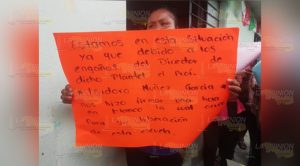 "Estamos en esta Situación
ya que debido a los
engaños del Director de
dicho Plantel el Prof.
Isidoro Muñoz García
nos hizo firmar una hoja
en blanco la cual
para la liberación
de esta escuela
LA OPINIÓN